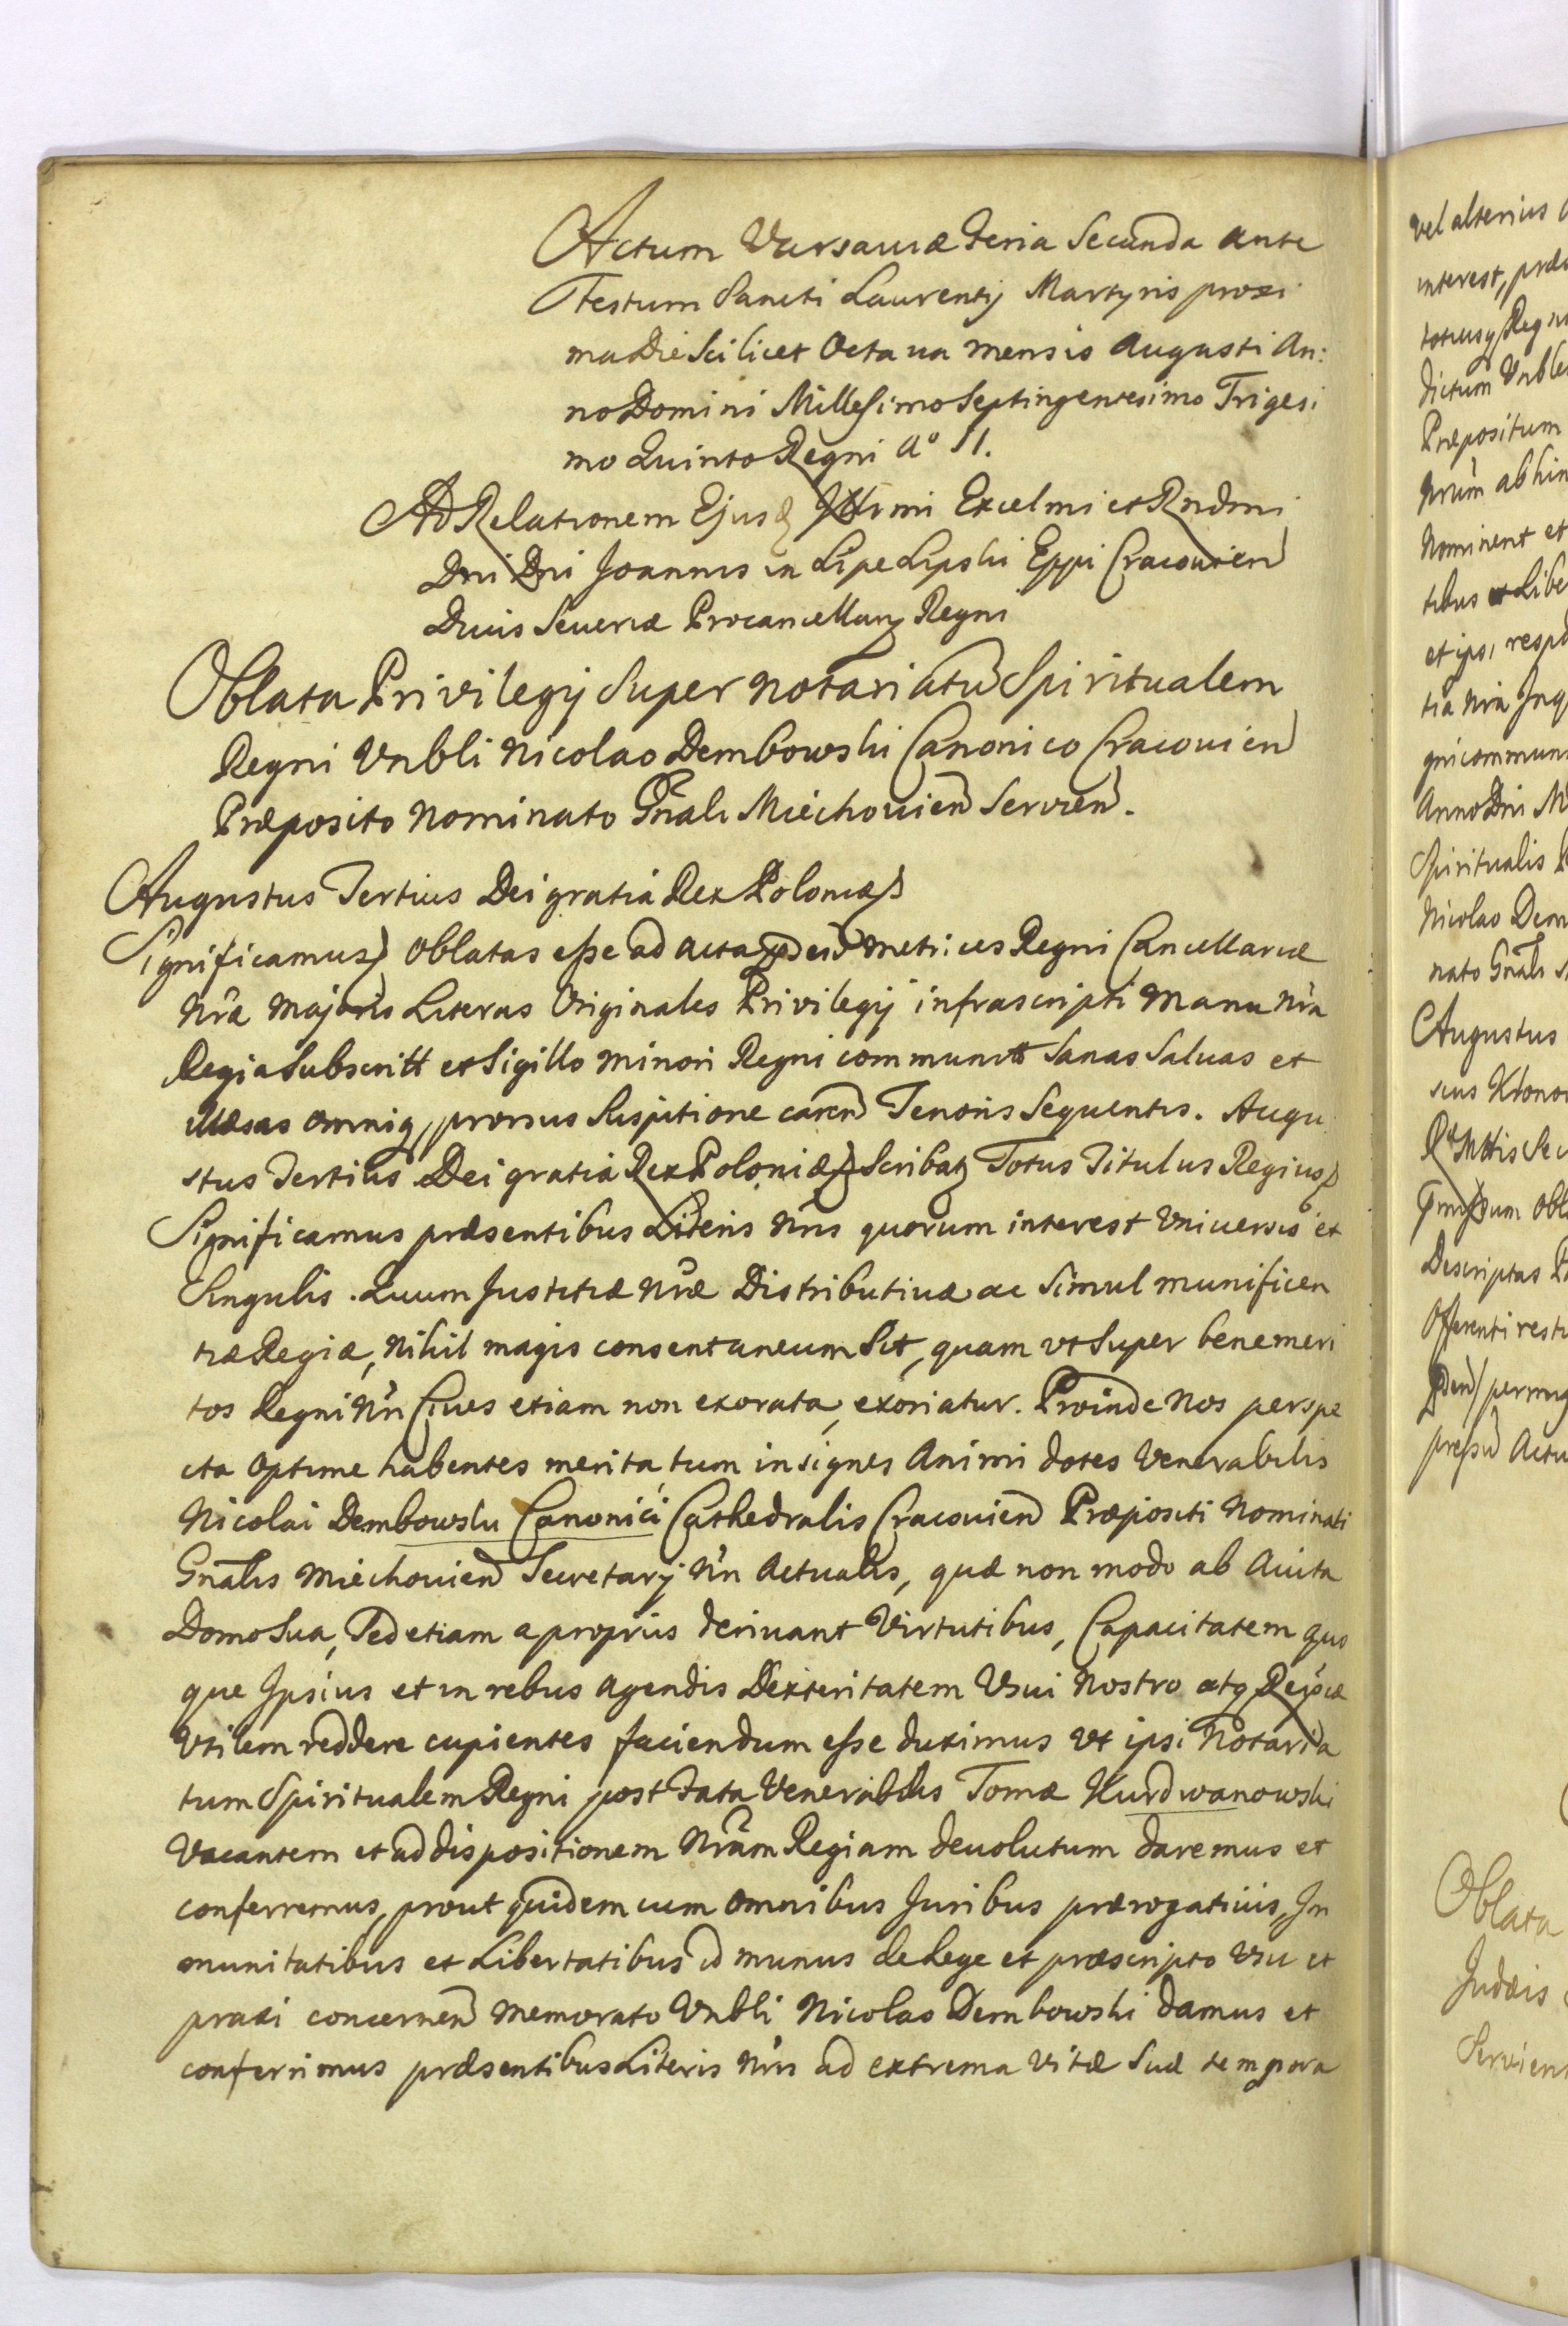 Actum Varsaviæ Feria Secunda ante
Festum Sancti Laurentij Martyris proxi
ma Die Scilicet Octaua mensis Augusti An:
no Domini Millesimo Septingentesimo Trigesi
mo Quinto Regni A° II.
Ad Relationem Ejusd Illrmi Excelmi et Rndmi
Dni Dni Joannis in Lipe Lipski Eppi Cracouien
Ducis Seueriæ Procancellarij Regni
Oblata Privilegij Super Notariatu Spiritualem
Regni Vnbli Nicolao Dembowski Canonico Cracouien
Præposito Nominato Gnali Miechouien Servien.
Augustus Tertius Dei gratia Rex Poloniæ
Significamus Oblatas esse ad Acta metrices Regni Cancellariæ
Nræ Majoris Literas Originales Privilegij infrascripti Manu Nra
Regia Subscritt et Sigillo minori Regni communitt Sanas Saluas et
illæsas omniq, prorsus Suspitione caren Tenoris Sequentis. Augu
stus Tertius Dei gratia Rex Poloniæ Scribat Totus Titulus Regius
Significamus præsentibus Literis Nris quorum interest Vniuersis et
Singulis. Quum Justitiæ Nræ Distributiuæ ac Simul munificen
tiæ Regiæ, Nihil magis consentaneum Sit, quam vt Super benemeri
tos Regni Nri Ciues etiam non exorata, exoriatur. Proinde Nos perspe
cta Optime habentes merita, tum insignes Animi dotes Venerabilis
Nicolai Dembowski Canonici Cathedralis Cracouien Præpositi Nominati
Gnalis Miechouien Secretarij Nri Actualis, quæ non modo ab Auita
Domo Sua, Sed etiam a propriis deriuant Virtutibus, Capacitatem quo
que Ipsius et in rebus Agendis Dexteritatem Vsui Nostro atq Reipcæ
Vtilem reddere cupientes faciendum esse duximus Vt ipsi Notaria
tum Spiritualem Regni post Fata Venerabilis Tomæ Kurdwanowski
Vacantem et ad dispositionem Nram Regiam deuolutum daremus et
conferremus, prout quidem cum Omnibus Juribus prærogatiuis, Im
munitatibus et Libertatibus id munus de Lege et præscripto Vsu et
praxi concernen memorato Vnbli Nicolao Dembowski Damus et
conferimus præsentibus Literis Nris ad extrema Vitæ Suæ tempora
vel alterius
interest, præ
totiusq Regni
dictum Vnble
Præpositum
Nrum abhin
Nominent et
tibus et Libe
et ipsi resp
tia Nra Jng
gni commun
Anno Dni M
Spiritualis
Nicolao Dem
nato Gnali
Augustus
Descriptas
Offerenti resti
Actu
Oblata
Judæis
Servien